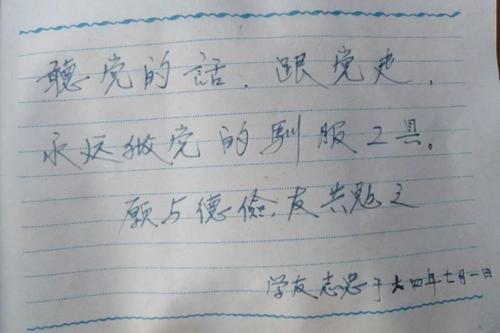 聽党的話.跟党走,
永远做党的馴服工具。
願与德儉.友共勉之
学友志忠于六四年七月一日